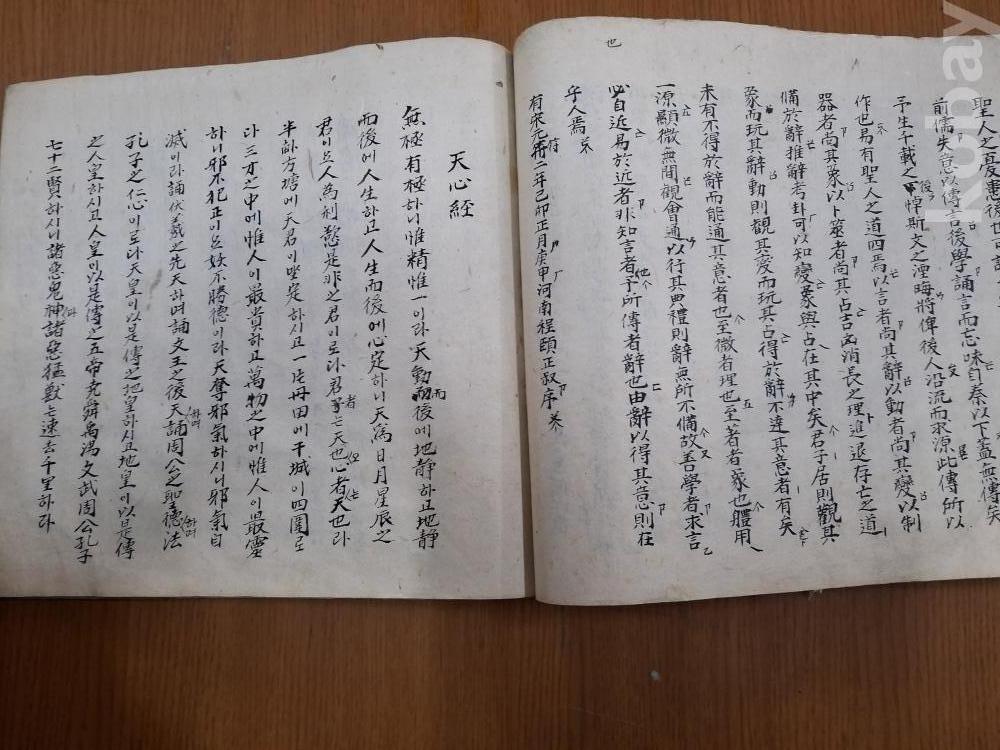 聖人之憂患後世可
前儒失意以傳言後學誦言而忘味自秦以下蓋無傳矣
予生千載之後悼斯文之湮晦將俾後人沿流而求源此傳所以
作也易有聖人之道四焉以言者尙其辭以動者尙其變以制
器者尙其象以卜筮者尙其占吉凶消長之理進退存亡之道
備於辭推辭考卦可以知變象與占在其中矣君子居則觀其
象而玩其辭動則觀其變而玩其占得於辭不達其意者有矣
未有不得於辭而能通其意者也至微者理也至著者象也體用
一源顯微無間觀會通以行其典禮則辭無所不備故善學者求言
必自近易於近者非知言者予所傳者辭也由辭以得其意則在
乎人焉
有宋元符二年己卯正月庚申河南程頤正叔序
也
天心經
無極有極하니惟精惟一이라天動而後에地静하고地静
而後에人生하고人生而後에心定하니天爲日月星辰之
君이요人爲利慾是非之君이로다君者는天也心者天也라
半畝方塘에天君이坐定하시고一片丹田에干城이四圍로
다三才之中에惟人이最貴하고萬物之中에惟人이最靈
하니邪不犯正이요妖不勝德이라天奪邪氣하시니邪氣自
滅이라誦伏羲之先天하며誦文王之後天誦周公之聖德하며法
孔子之仁心이로다天皇이以是傳之地皇하시고地皇이以是傳
之人皇하시고人皇이以是傳之五帝堯舜禹湯文武周公孔子
七十二賢하시니諸惡鬼神諸惡猛獸는速去千里하라
kobay